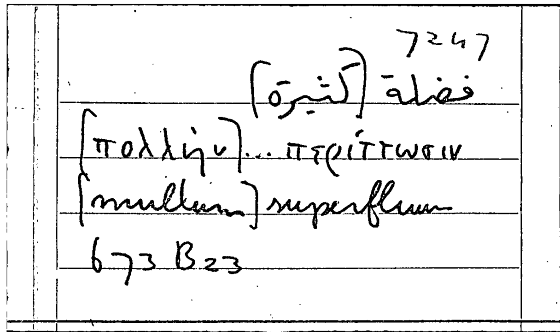 7247
فضلة [كثيرة]
[πολλὴν]... περίττωσιν
[multum] superfluum
673 B23